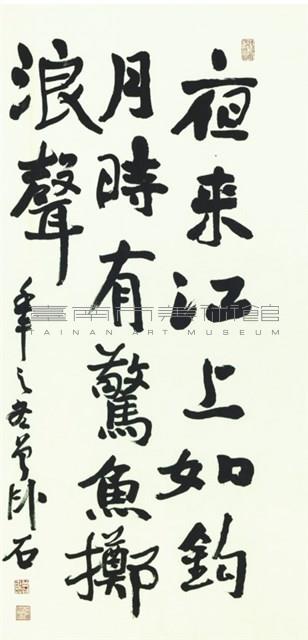 夜来江上如鈎
月時有驚魚擲
浪聲
之冬曾卧石
臺南市美術館
TAINAN ART MUSEUM